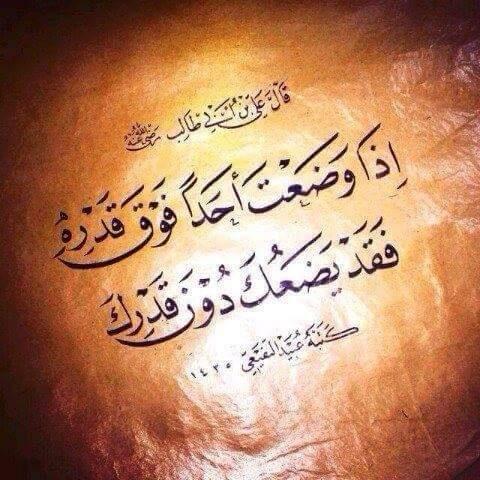 قَالَ عَلِيُّ بْنُ أَبِي طَالِبٍ رَضِيَ اللهُ عَنْهُ
إِذَا وَضَعْتَ أَحَدًا فَوْقَ قَدْرِهِ
فَقَدْ يَضَعُكَ دُوْنَ قَدْرِكَ
كَتَبَهُ عُبَيْد
١٤٣٥